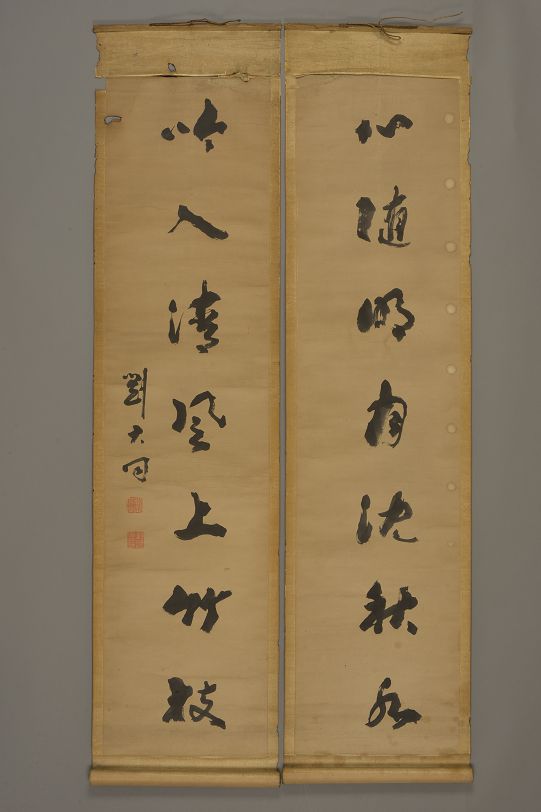 心隨明月沈秋水
吟入清風上竹枝
劉大同